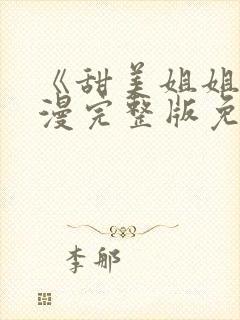 《甜美姐姐
漫完整版免
李郍